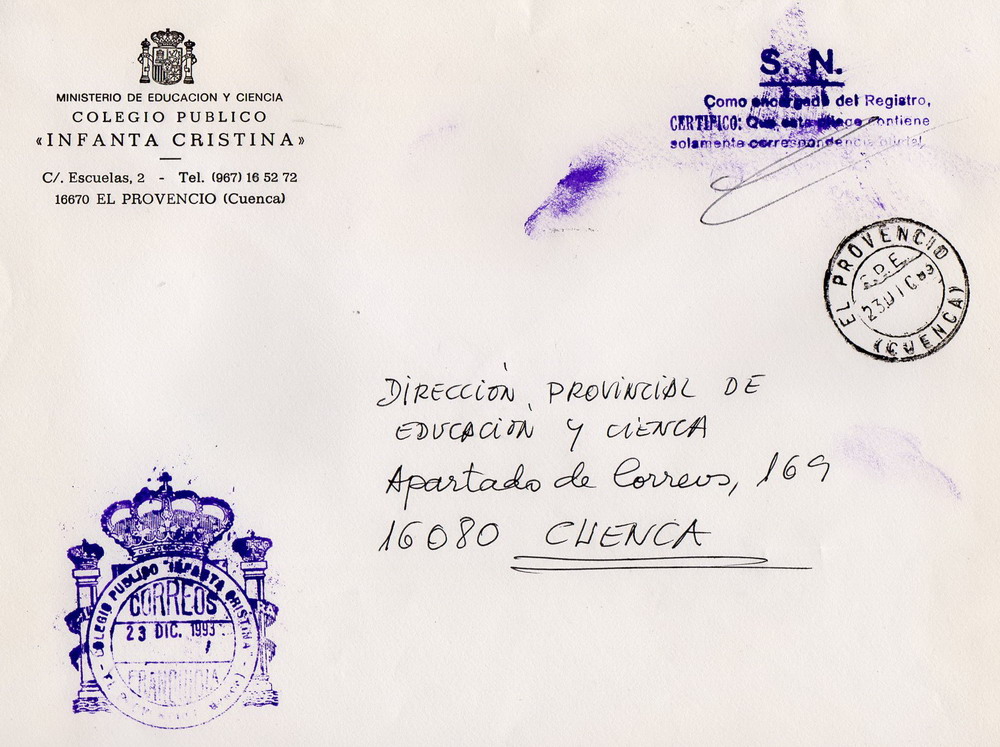 MINISTERIO DE EDUCACION Y CIENCIA
COLEGIO PUBLICO
«INFANTA CRISTINA»
C/. Escuelas, 2 - Tel. (967) 16 52 72
16670 EL PROVENCIO (Cuenca)
S. N.
Como encargado del Registro,
CERTIFICO: Que este pliego contiene
solamente correspondencia oficial.
EL PROVENCIO
23 DIC
(CUENCA)
DIRECCIÓN PROVINCIAL DE
EDUCACIÓN Y CIENCA
Apartado de Correos, 169
16080 CUENCA
COLEGIO PUBLICO "INFANTA CRISTINA"
CORREOS
23 DIC. 1993
FRANQUICIA